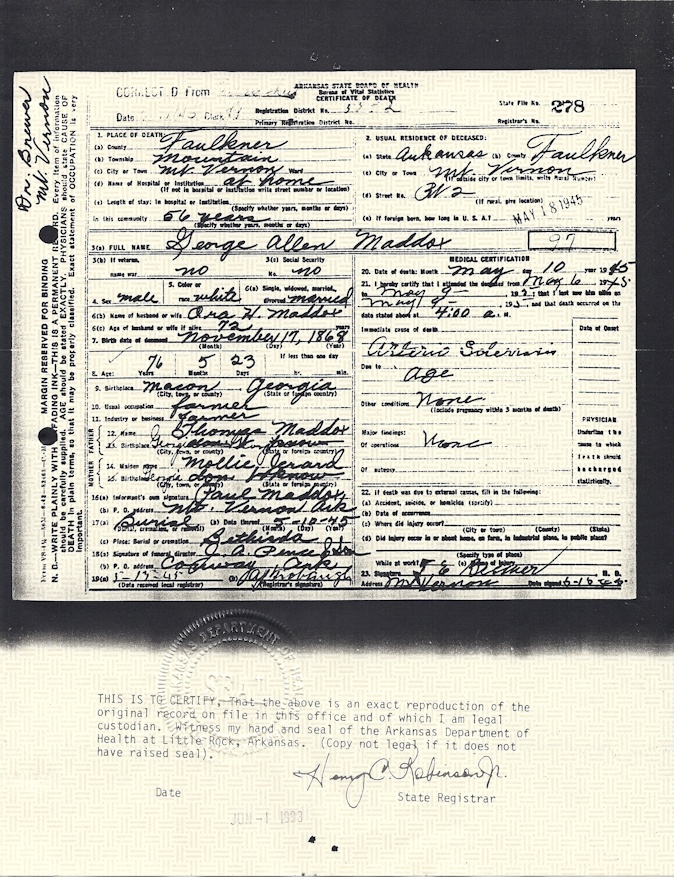 Dr. Brewer
Mt. Vernon
MARGIN RESERVED FOR BINDING
N. B.—WRITE PLAINLY WITH FADING INK—THIS IS A PERMANENT RECORD. Every item of information
should be carefully supplied. AGE should be stated EXACTLY. PHYSICIANS should state CAUSE OF
DEATH in plain terms, so that it may be properly classified. Exact statement of OCCUPATION is very
important.
CORRECT D From
Date Clerk
ARKANSAS STATE BOARD OF HEALTH
Bureau of Vital Statistics
CERTIFICATE OF DEATH
Registration District No.
Primary Registration District No.
State File No. 278
Registrar's No.
1. PLACE OF DEATH:
(a) County Faulkner
(b) Township Mountain
(c) City or Town Mt. Vernon Ward
(d) Name of Hospital or Institution at home
(If not in hospital or institution write street number or location)
(e) Length of stay: in hospital or institution
(Specify whether years, months or days)
in this community 56 years
(Specify whether years, months or days)
2. USUAL RESIDENCE OF DECEASED:
(a) State Arkansas (b) County Faulkner
(c) City or Town Mt. Vernon
(If outside city or town limits, write Rural Number)
(d) Street No. 2
(If rural, give location)
(e) If foreign born, how long in U. S. A.? years
MAY 18 1945
3(a) FULL NAME George Allen Maddox
97
3(b) If veteran, name war no
3(c) Social Security No. no
4. Sex male
5. Color or race white
6(a) Single, widowed, married, divorced married
6(b) Name of husband or wife Ora H. Maddox
6(c) Age of husband or wife if alive 72 years
7. Birth date of deceased November 17, 1868
(Month) (Day) (Year)
8. Age: 76 Years 5 Months 23 Days If less than one day hr. min.
9. Birthplace Macon Georgia
(City, town, or county) (State or foreign country)
10. Usual occupation farmer
11. Industry or business farmer
FATHER
12. Name Thomas Maddox
13. Birthplace Georgia don't know
(City, town, or county) (State or foreign country)
MOTHER
14. Maiden name Mollie Jerard
15. Birthplace Florida don't know
(City, town, or county) (State or foreign country)
16(a) Informant's own signature Paul Maddox
(b) P. O. address Mt. Vernon Ark
17(a) Burial (b) Date thereof 5-10-45
(Burial, cremation, or removal) (Month) (Day) (Year)
(c) Place: Burial or cremation Bethisda
18(a) Signature of funeral director J. A. Pence & Son
(b) P. O. address Conway Ark
19(a) 5-15-45 (b)
(Date received local registrar) (Registrar's signature)
MEDICAL CERTIFICATION
20. Date of death: Month May day 10 year 1945
21. I hereby certify that I attended the deceased from May 6, 1945
to May 9 19 ; that I last saw him alive on
May 9 19 , and that death occurred on the
date stated above at 4:00 a. M.
Immediate cause of death Date of Onset
Arterio Sclerosis
Due to Age
Other conditions None
(Include pregnancy within 3 months of death)
Major findings:
Of operations None
Of autopsy
PHYSICIAN
Underline the
cause to which
death should
be charged
statistically.
22. If death was due to external cause, fill in the following:
(a) Accident, suicide, or homicide (specify)
(b) Date of occurrence
(c) Where did injury occur?
(City or town) (County) (State)
(d) Did injury occur in or about home, on farm, in industrial place, in public place?
(Specify type of place)
While at work? (e) Means of injury
23. Signature M. D.
Address Mt Vernon Date signed
ARKANSAS DEPARTMENT OF HEALTH
SEAL
THIS IS TO CERTIFY, That the above is an exact reproduction of the
original record on file in this office and of which I am legal
custodian. Witness my hand and seal of the Arkansas Department of
Health at Little Rock, Arkansas. (Copy not legal if it does not
have raised seal).
Henry C. Robinson Jr.
Date State Registrar
JUN -1 1993